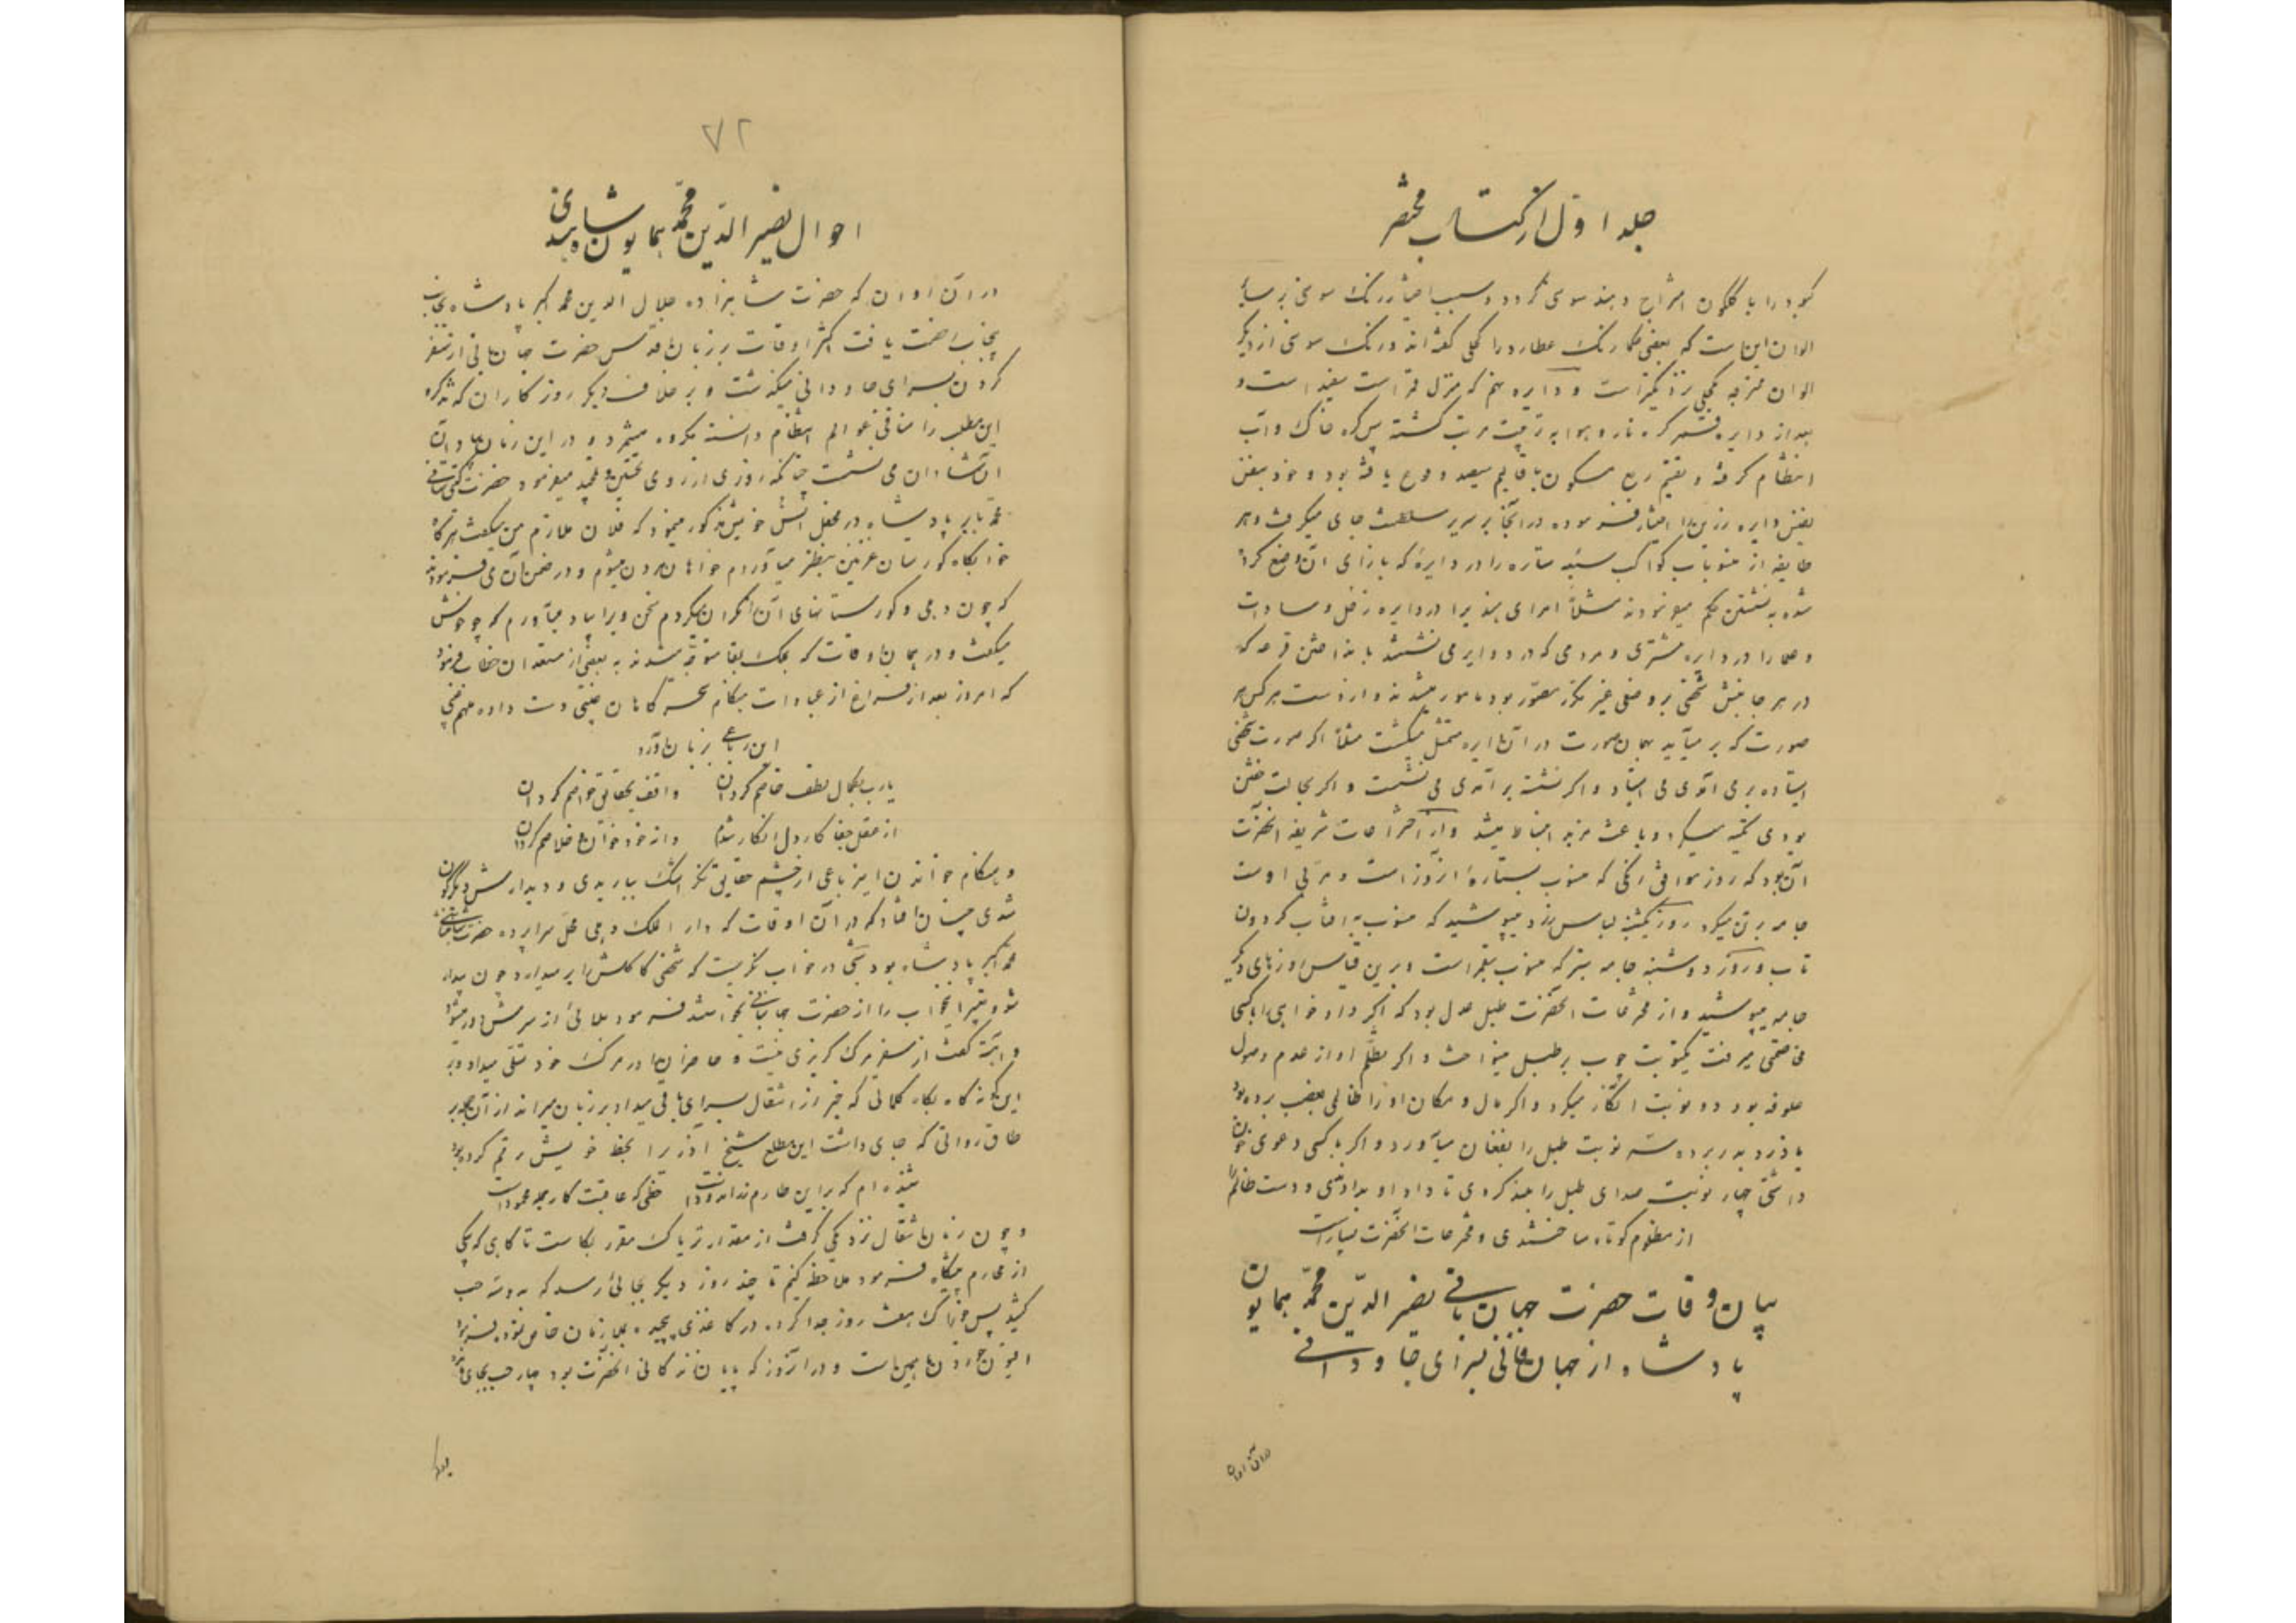 جلد اول از کتاب مختصر
کبود را با گلگون امتزاج دهند سوسنی گردد و سبب امتیاز رنگ سوسنی بر سایر
الوان این است که بعضی حکما رنگ عطارد را کحلی گفته‌اند و رنگ سوسنی از دیگر
الوان ممتزجه بکحلی نزدیکتر است و دایره نهم که منزل قمر است سفید است و
بعد از دایره قمر کره نار و هوا به ترتیب مرتب گشته پس کره خاک و آب
انتظام گرفته و تقسیم ربع مسکون باقالیم سبعه وقوع یافته بود و خود بنفس
نفیس دایره زرین را اختیار فرموده در آنجا بر سریر سلطنت جای میگرفت و هر
طایفه از منسوبات کواکب سبعه سیاره را در دایره که بازای آن وضع کرده
شده به نشستن حکم میفرمودند مثلاً امرای هند را در دایره زحل و سادات
و علما را در دایره مشتری و مردمی که در دوایر می نشستند با نداختن قرعه که
در هر جانبش شخصی بر وضعی غیر مکرر مصور بود مامور میشدند و از دست هر کس هر
صورت که بر میآید همان صورت در آن دایره متمثل میگشت مثلاً اگر صورت شخصی
ایستاده برمی آمدی می ایستاد و اگر نشسته بر آمدی می نشست و اگر بحالت خفتن
بودی تکیه میکرد و باعث مزید انبساط میشد و از اختراعات شریفه آنحضرت
آن بود که روز موافق رنگی که منسوب بستاره آن روز است و مربی اوست
جامه بر تن میکرد روز یکشنبه لباس زرد میپوشید که منسوب به آفتاب گردون
تاب و روز دوشنبه جامه سبز که منسوب بقمر است و برین قیاس روزهای دیگر
جامه میپوشید و از مخترعات آنحضرت طبل عدل بود که اگر دادخواهی را باکسی
مخاصمتی میرفت یکنوبت چوب بر طبل مینواخت و اگر تظلم او از عدم وصول
علوفه بود دو نوبت آنکار میکرد و اگر مال و مکان او را ظالمی بغصب برده بود
یا دزد بدر برده سه نوبت طبل را بفغان میآورد و اگر باکسی دعوی خون
داشتی چهار نوبت صدای طبل را بلند کردی تا داد او بدادندی و دست ظالم را
از مظلوم کوتاه ساختندی و مخترعات آنحضرت بسیار است
بیان وقات حضرت جهانبانی نصیر الدین محمد همایون
پادشاه از جهان فانی بسرای جاودانی
در آن اوان
۷۲
احوال نصیر الدین محمد همایون شاه هندی
در آن اوان که حضرت شاهزاده جلال الدین محمد اکبر پادشاه بجانب
پنجاب رخصت یافت اکثر اوقات بر زبان قدس حضرت جهانبانی از سفر
کردن بسرای جاودانی میگذشت و بر خلاف دیگر روزگاران که تذکره
این مطلب را منافی عوالم انتظام دانسته مکروه میشمرد و در این زمان
شادان می نشست چنانکه روزی از روی تحسین و تمجید میفرمود حضرت گیتی ستانی
محمد بابر پادشاه در محفل انس خویش مذکور مینمود که فلان ملازم من میگفت هرگاه
خوابگاه گورستان غزنین بنظر میآوردم خواهان مردن میشوم و در ضمن آن میفرمودند
که چون دهلی و گورستانهای آن نگران میگردم سخن ویرا بیاد میآورم که چه خوش
میگفت و در همان اوقات که بملک بقا متوجه میشدند به بعضی از معتقدان خطاب فرمود
که امروز بعد از فراغ از عبادات هنگام سحرگاهان فیضی دست داده ملهم غیبی
این رباعی بر زبان آورد
یارب بکمال لطف خاصم گردان واقف بحقایق خواصم گردان
از عقل جفاکار دل افکار شدم دیوانه خود خوان و خلاصم گردان
و هنگام خواندن این رباعی از چشم حقایق نگر اشک بباریدی و دیدارش دیگرگون
شدی چنان افتاد که در آن اوقات که دار الملک دهلی محل سراپرده حضرت شاهنشاهی
محمد اکبر پادشاه بود شبی در خواب نگریست که شخصی کاکلش را بر میدارد چون بیدار
شود تعبیر آنخواب را از حضرت جهانبانی بخواستند فرمود بلائی از سرش دور میشود
و البته گفت از سفر مرگ گریزی نیست و حاضران را در مرگ خود تسلی میداد و بر
این گونه گاه بگاه کلماتی که خبر از انتقال بسرای باقی میداد بر زبان میراند از آن جمله بر
طاق رواقی که جای داشت این مطلع شیخ آذر را بخط خویش رقم کرده بود
شنیده‌ام که بر این طارم زراندود است خطی که عاقبت کار جمله محمود است
و چون زمان انتقال نزدیکی گرفت از مقدار تریاک مقرر بکاست تا گاهی که بیکی
از محارم پیشگاه فرمود ملاحظه کنیم تا چند روز دیگر بجائی رسد که به دو سه حب
کشید پس خوراک هفت روز جدا کرده در کاغذی پیچیده بملازمان خاص خود بفرمود
افیون خوردن ما همین است و در آنروز که پایان زندگانی آنحضرت بود چهار حب بجای مانده
بود